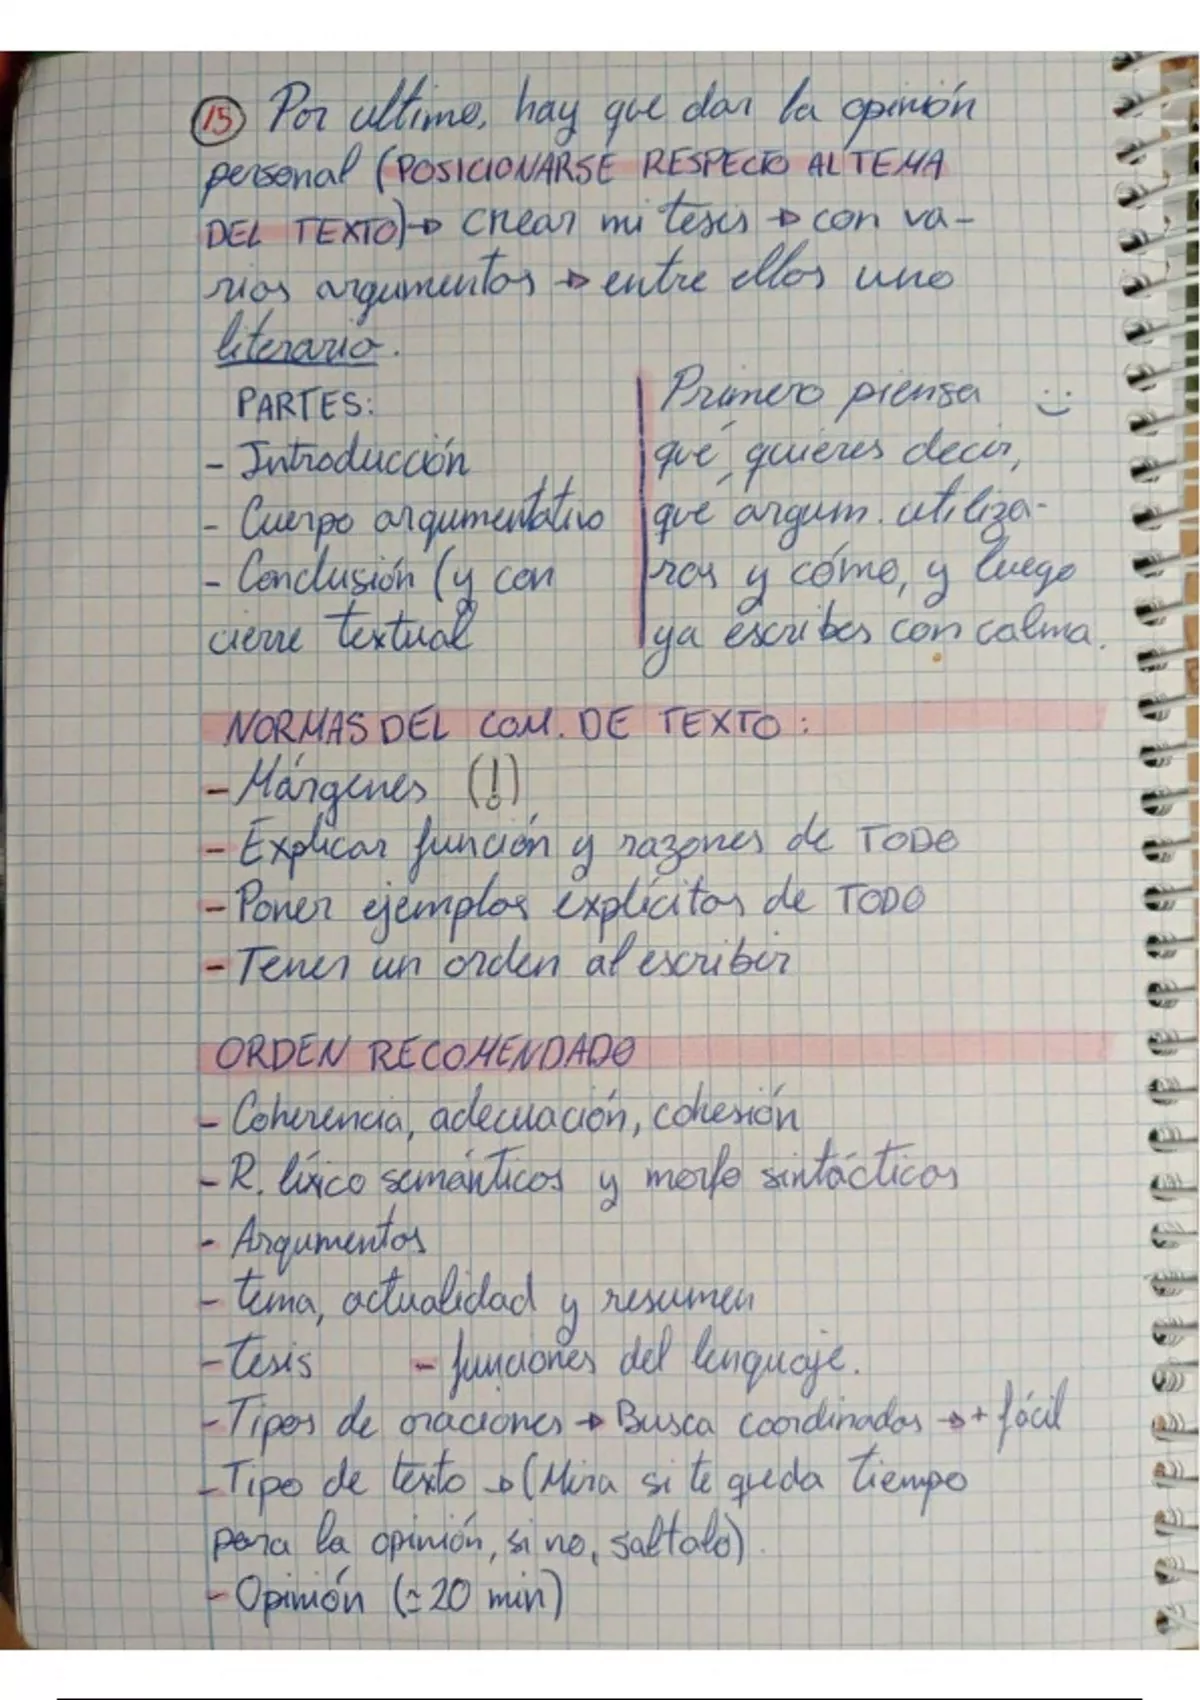 15 Por ultimo, hay que dar la opinión
personal (POSICIONARSE RESPECTO AL TEMA
DEL TEXTO)→ crear mi tesis → con va-
rios argumentos → entre ellos uno
literario.
PARTES:
- Introducción
- Cuerpo argumentativo
- Conclusión (y con
cierre textual
Primero piensa :)
qué quieres decir,
qué argum. utiliza-
ras y cómo, y luego
ya escribes con calma.
NORMAS DEL COM. DE TEXTO:
- Márgenes (!)
- Explicar función y razones de TODO
- Poner ejemplos explícitos de TODO
- Tener un orden al escribir
ORDEN RECOMENDADO
- Coherencia, adecuación, cohesión
- R. léxico semánticos y morfo sintácticos
- Argumentos
- tema, actualidad y resumen
- tesis - funciones del lenguaje.
- Tipos de oraciones → Busca coordinadas → + fácil
- Tipo de texto → (Mira si te queda tiempo
para la opinión, si no, saltalo).
- Opinión (≃ 20 min)